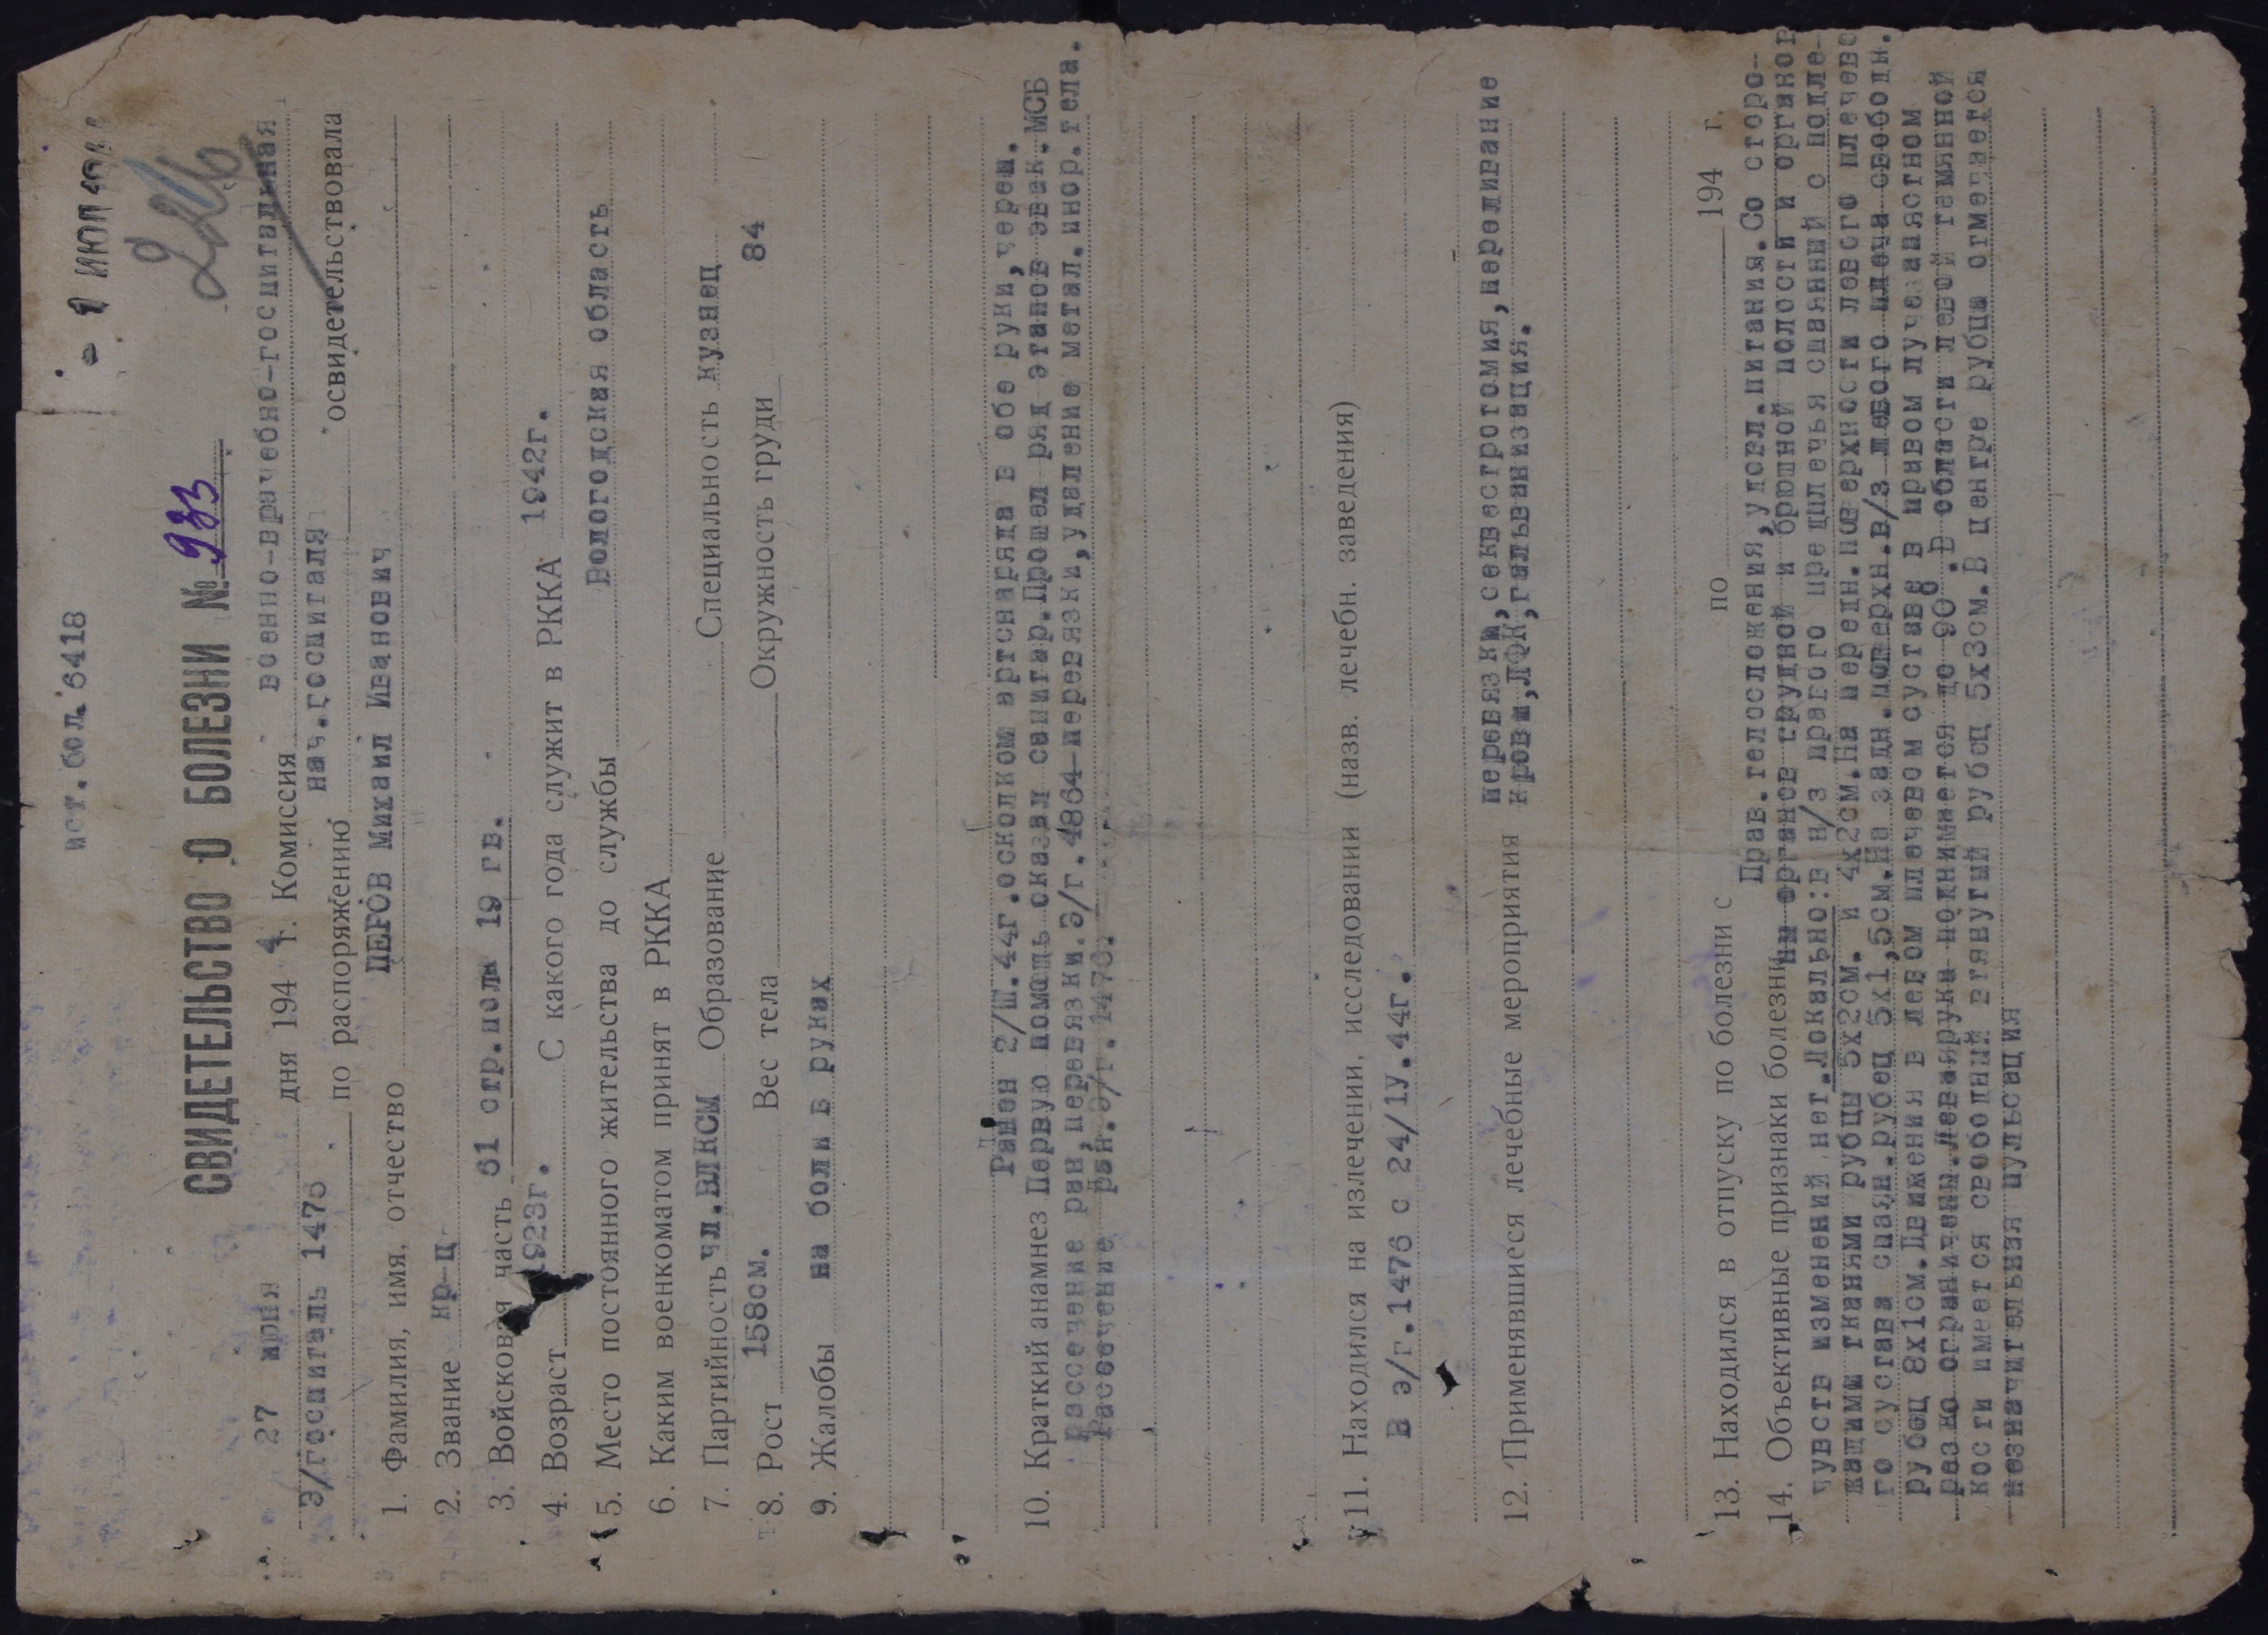 ист.бол.6418
1 ИЮЛ
СВИДЕТЕЛЬСТВО О БОЛЕЗНИ № 933
27 июня дня 1944 г. Комиссия военно-врачебно-госпитальная
Э/госпиталь 1476 по распоряжению нач.госпиталя освидетельствовала
1. Фамилия, имя, отчество ПЕРОВ Михаил Иванович
2. Звание кр-ц
3. Войсковая часть 61 стр.полк 19 гв.
4. Возраст 1923г. С какого года служит в РККА 1942г.
5. Место постоянного жительства до службы Вологодская область
6. Каким военкоматом принят в РККА
7. Партийность чл.ВЛКСМ Образование Специальность кузнец
8. Рост 158см. Вес тела Окружность груди 84
9. Жалобы на боли в руках
Ранен 2/Ш.44г.осколком артснаряда в обе руки,череп.
10. Краткий анамнез Первую помощь оказал санитар.Прошел ряд этапов эвак.МСБ
рассечение ран,перевязки.Э/г.4864-перевязки,удаление метал.инор.тела.
Рассечение ран.Э/г.1476.
11. Находился на излечении, исследовании (назв. лечебн. заведения)
В э/г.1476 с 24/1у.44г.
12. Применявшиеся лечебные мероприятия перевязки,секвестротомия,переливание
крови,ЛФК,гальванизация.
13. Находился в отпуску по болезни с по 194 г.
Прав.телосложения,удовл.питания.Со сторо-
14. Объективные признаки болезни ны органов грудной и брюшной полости и органов
чувств изменений нет.Локально:в н/з правого предплечья спаянный с подле-
жащими тканями рубцы 5х2см. и 4х2см.На передн.поверхности левого плечево
го сустава спаян.рубец 5х1,5см.На задн.поверхн.в/з левого плеча свободн.
рубец 8х1см.Движения в левом плечевом суставе в правом лучезапястном
резко ограничены.Левая рука поднимается до 90°.В области левой темянной
кости имеется свободный втянутый рубец 5х3см.В центре рубца отмечается
незначительная пульсация